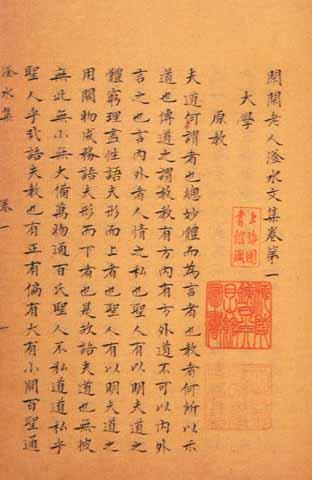 閑閑老人滏水文集卷第一
大學
原教
夫道何謂者也總妙體而為言者也教者何所以示
道也傳道之謂教教有方內有方外道不可以內外
言之也言內外者人情之私也聖人有以明夫道之
體窮理盡性語夫形而上者也聖人有以明夫道之
用開物成務語夫形而下者也是故語夫道也無彼
無此無小無大備萬物通百氏聖人不私道道私乎
聖人乎哉語夫教也有正有偏有大有小開百聖通
滏水集
卷一
一
上海圖書館藏